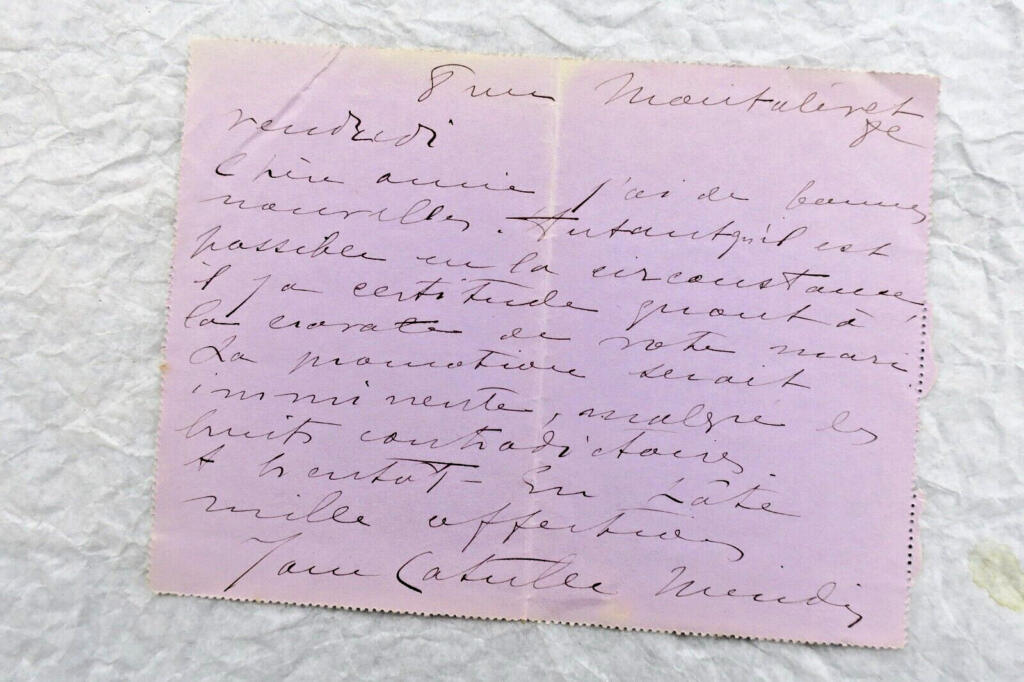 8 rue Montalivet
8e
vendredi
Chère amie j'ai de bonnes
nouvelles. Autant qu'il est
possible en la circonstance,
il y a certitude quant à
la cravate de votre mari.
La promotion serait
imminente, malgré les
bruits contradictoires.
A bientôt - En hâte
mille affections
Jane Catulle Mendès